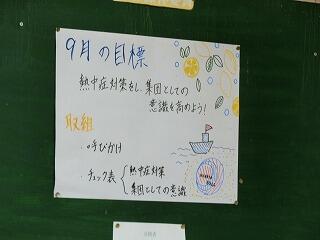 9月の目標
熱中症対策をし、集団としての
意識を高めよう!
取組
・呼びかけ
・チェック表 { 熱中症対策
集団としての意識